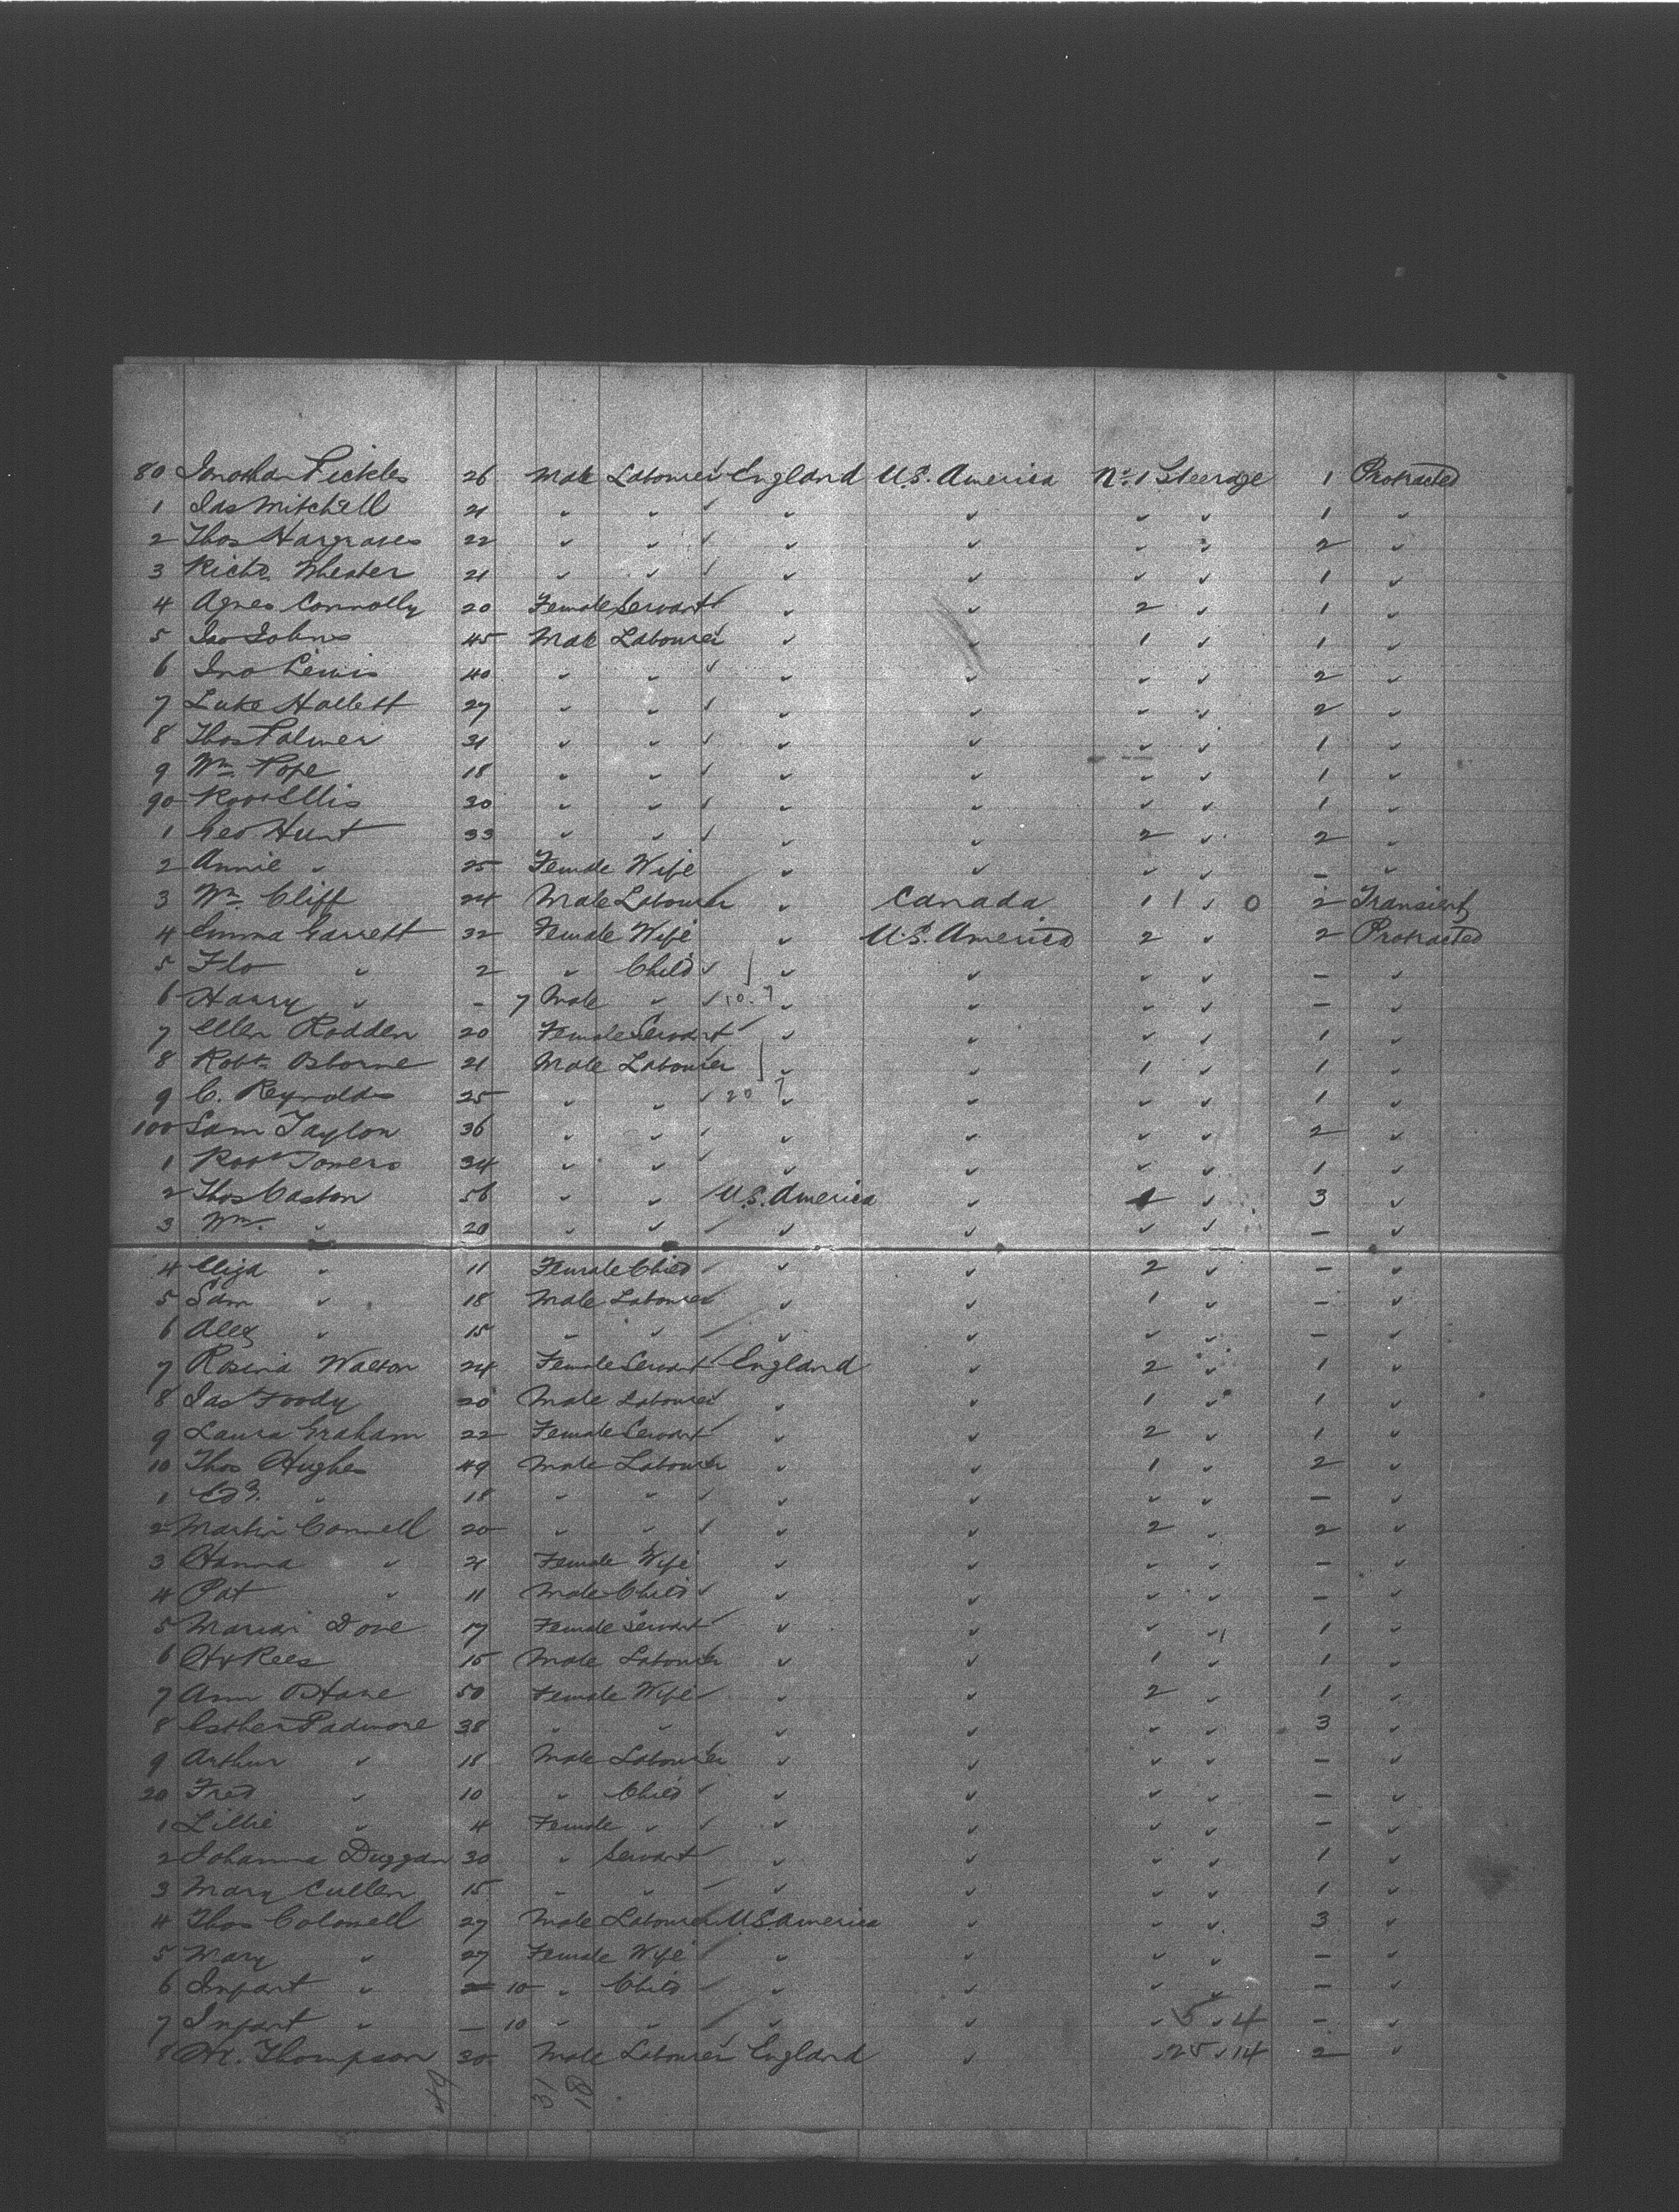 80 Jonathan Pickles 26 Male Labourer England U.S. America No. 1 Steerage 1 Protracted
1 Jas Mitchell 21 " " " " " " 1 "
2 Thos Hargraves 22 " " " " " " 2 "
3 Richd. Wheater 21 " " " " " " 1 "
4 Agnes Connolly 20 Female Servant " " 2 " 1 "
5 Jno Johns 45 Male Labourer " " 1 " 1 "
6 Jno Lewis 40 " " " " " " 2 "
7 Luke Hallett 27 " " " " " " 2 "
8 Thos Palmer 31 " " " " " " 1 "
9 Wm. Pope 18 " " " " " " 1 "
90 Robt Ellis 30 " " " " " " 1 "
1 Geo Hunt 33 " " " " 2 " 2 "
2 Annie " 25 Female Wife " " " " – "
3 Wm. Cliff 24 Male Labourer " Canada 1 1 " 0 2 Transient
4 Emma Garrett 32 Female Wife " U.S. America 2 " 2 Protracted
5 Flo " 2 " Child " " " " – "
6 Harry " – 7 Male " 10.7 " " " " – "
7 Ellen Rodden 20 Female Servant " " " " 1 "
8 Robt. Osborne 21 Male Labourer " " 1 " 1 "
9 C. Reynolds 25 " " 20 7 " " " " 1 "
100 Sam Taylor 36 " " " " " " 2 "
1 Robt Towers 34 " " " " " " 1 "
2 Thos Caston 56 " " U.S. America " 1 " 3 "
3 Wm. " 20 " " " " " " – "
4 Eliza " 11 Female Child " " 2 " – "
5 Sam " 18 Male Labourer " " 1 " – "
6 Alex " 15 " " " " " " – "
7 Rosina Walton 24 Female Servant England " 2 " 1 "
8 Jas Foody 20 Male Labourer " " 1 " 1 "
9 Laura Graham 22 Female Servant " " 2 " 1 "
10 Thos Hughes 49 Male Labourer " " 1 " 2 "
1 " 18 " " " " " " – "
2 Martin Connell 20 " " " " 2 " 2 "
3 Hanna " 21 Female Wife " " " " – "
4 Pat " 11 Male Child " " " " – "
5 Maria Dove 17 Female Servant " " " " 1 "
6 Hy Rees 15 Male Labourer " " 1 " 1 "
7 Ann 50 Female Wife " " 2 " 1 "
8 Esther Padmore 38 " " " " " " 3 "
9 Arthur " 18 Male Labourer " " " " – "
20 Fred " 10 " Child " " " " – "
1 Lillie " 4 Female " " " " " – "
2 Johanna Duggan 30 " Servant " " " " 1 "
3 Mary Cullen 15 " " " " " " 1 "
4 Thos Colowell 27 Male Labourer U.S. America " " " 3 "
5 Mary " 27 Female Wife " " " " – "
6 Infant " – 10 " Child " " " " – "
7 Infant " – 10 " " " " " 5 " 4 – "
8 Hr. Thompson 30 Male Labourer England " " 25 " 14 2 "
49 31 18